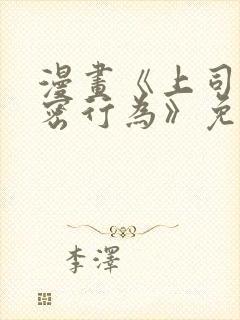 漫畫《上司
密行為》免
李澤